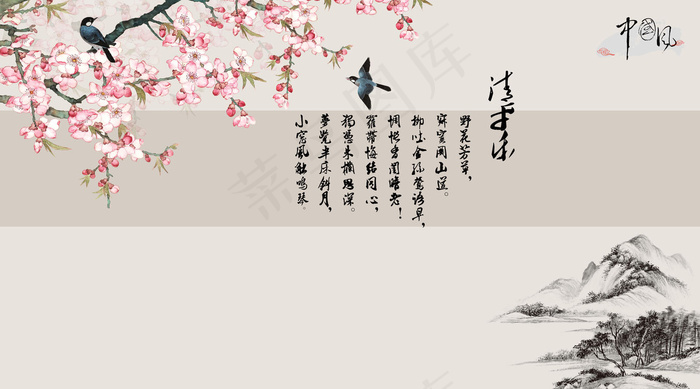 中国风
清平乐
野花芳草，
寂寞关山道。
柳吐金丝莺语早，
惆怅香闺暗老！
罗带悔结同心，
独凭朱栏思深。
梦觉半床斜月，
小窗风触鸣琴。
菜鸟图库